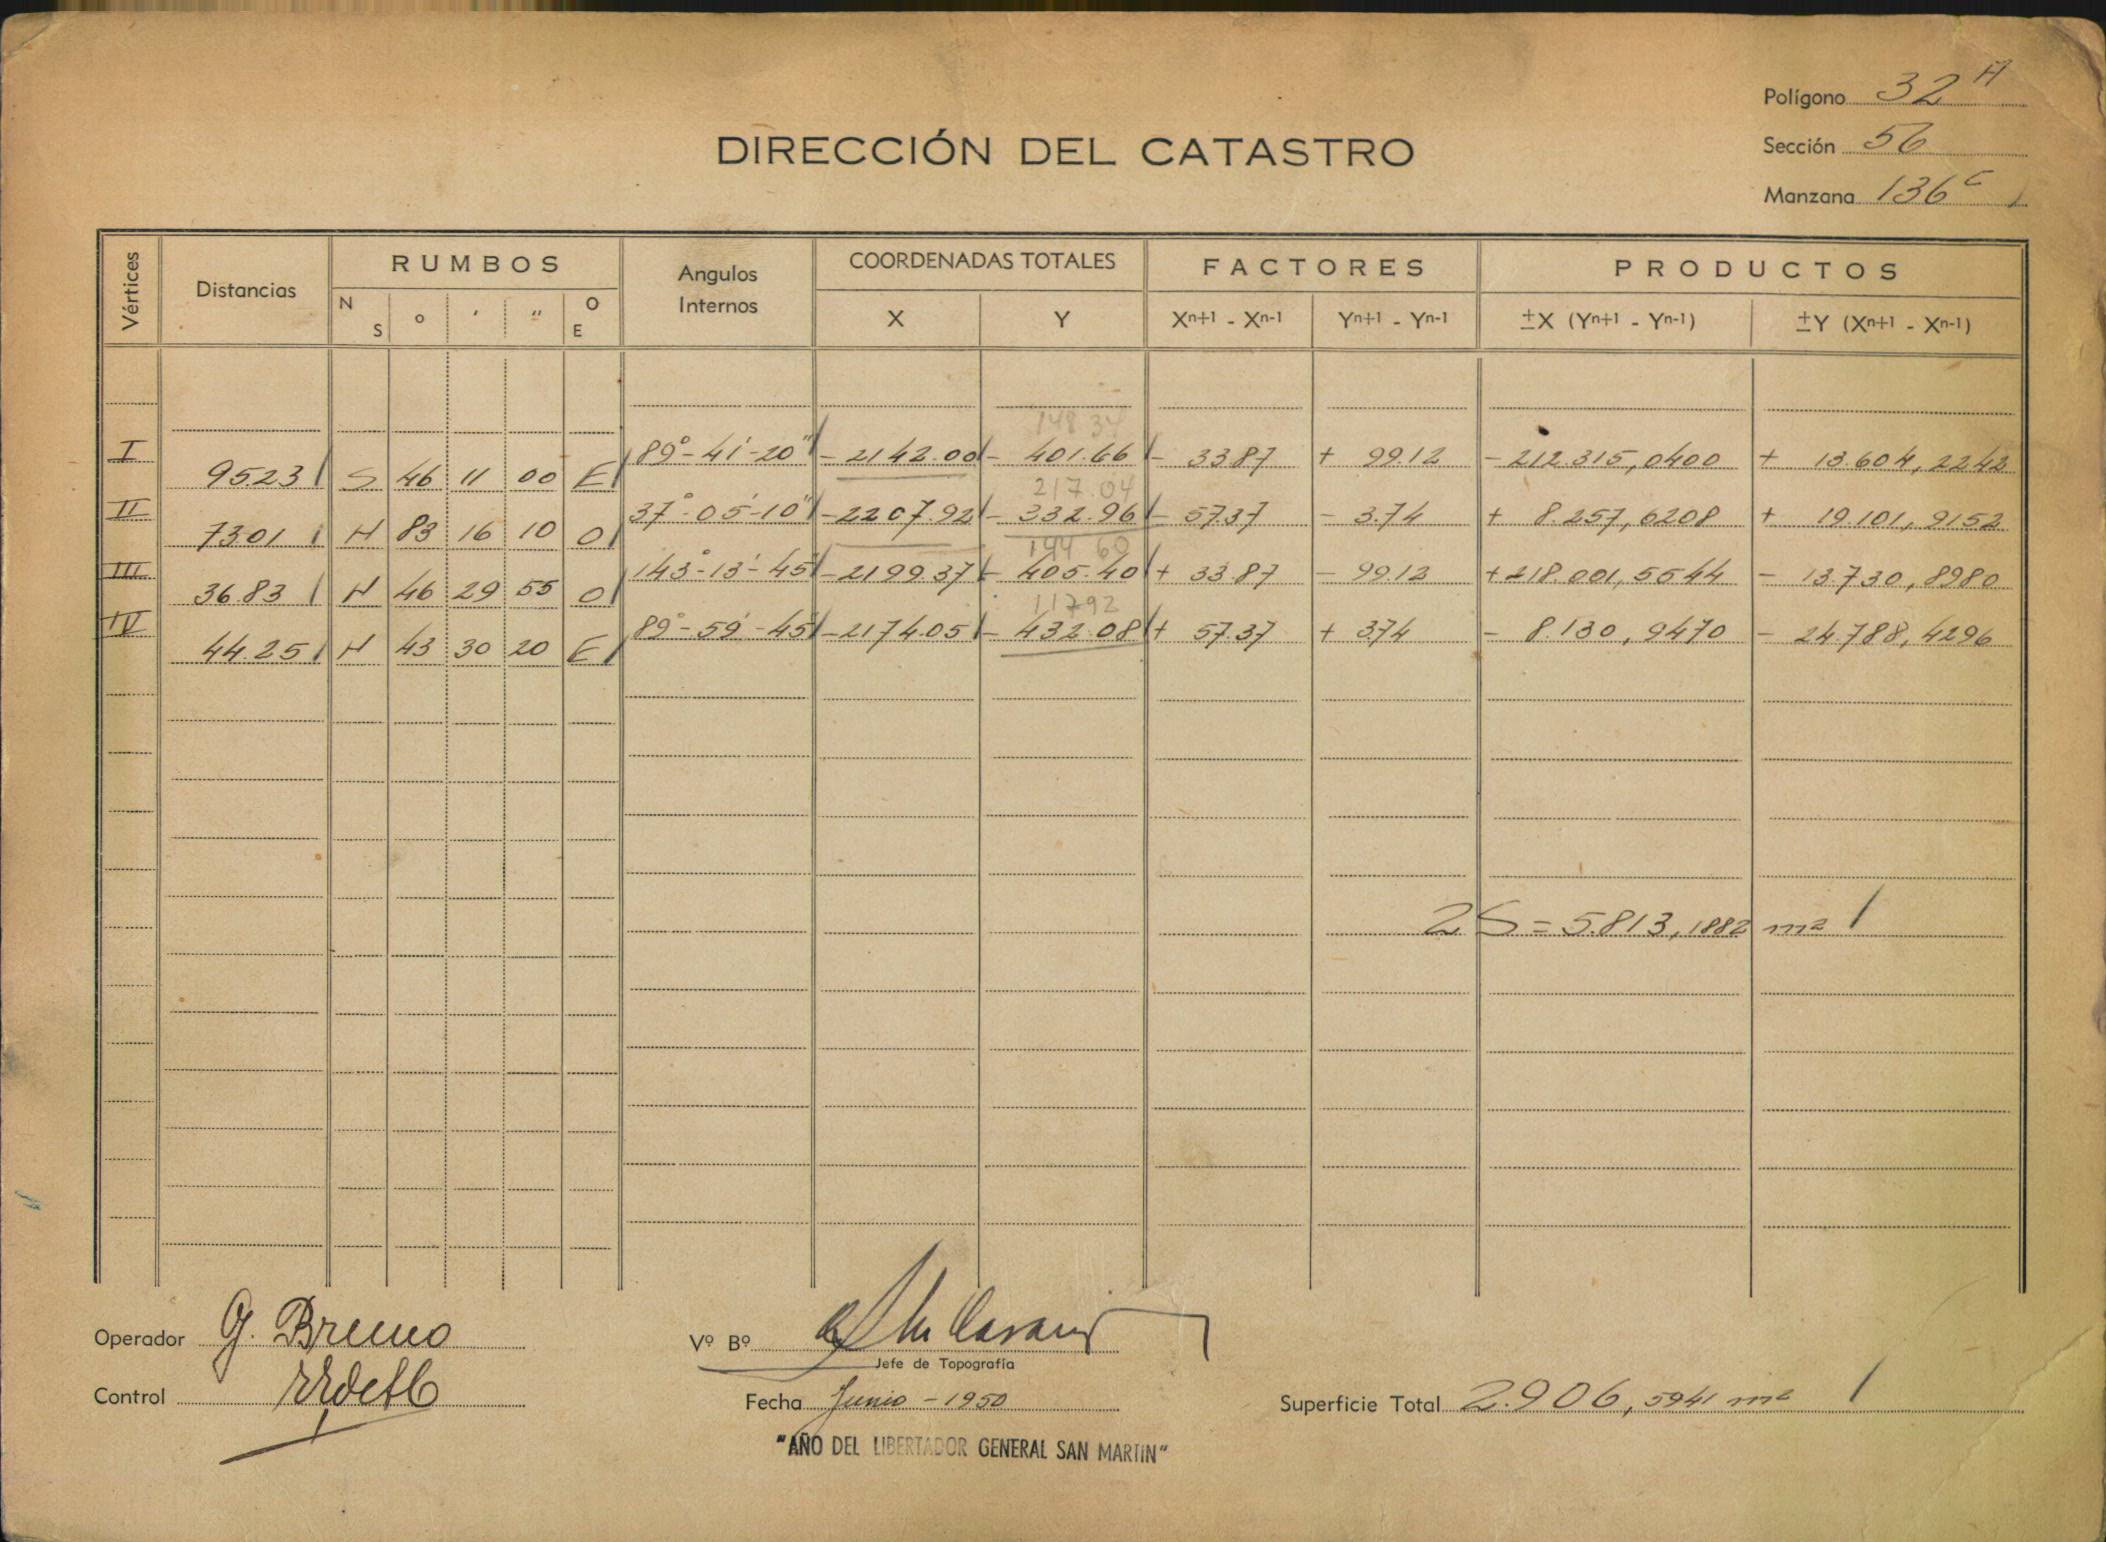 Polígono 32 H
Sección 56
Manzana 136 c
DIRECCIÓN DEL CATASTRO
Vértices Distancias RUMBOS Angulos Internos COORDENADAS TOTALES FACTORES PRODUCTOS
N S o ' " O E X Y Xn+1 - Xn-1 Yn+1 - Yn-1 ±X (Yn+1 - Yn-1) ±Y (Xn+1 - Xn-1)
148 34
I 89° - 41' - 20" - 2142.00 - 401.66 - 33.87 + 99.12 - 212.315,0400 + 13.604,2242
95.23 S 46 11 00 E
217.04
II 37° - 05' - 10" - 2207.92 - 332.96 - 57.37 - 3.74 + 8.257,6208 + 19.101,9152
73.01 N 83 16 10 O
144 60
III 143° - 13' - 45" - 2199.37 - 405.40 + 33.87 - 99.12 + 218.001,5544 - 13.730,8980
36.83 N 46 29 55 O
117 92
IV 89° - 59' - 45" - 2174.05 - 432.08 + 57.37 + 3.74 - 8.130,9470 - 24.788,4296
44.25 N 43 30 20 E
2S = 5.813,1882 m2
Operador G. Bruno
Vº Bº
Jefe de Topografía
Control
Fecha Junio - 1950
Superficie Total 2.906,5941 m2
"AÑO DEL LIBERTADOR GENERAL SAN MARTIN"